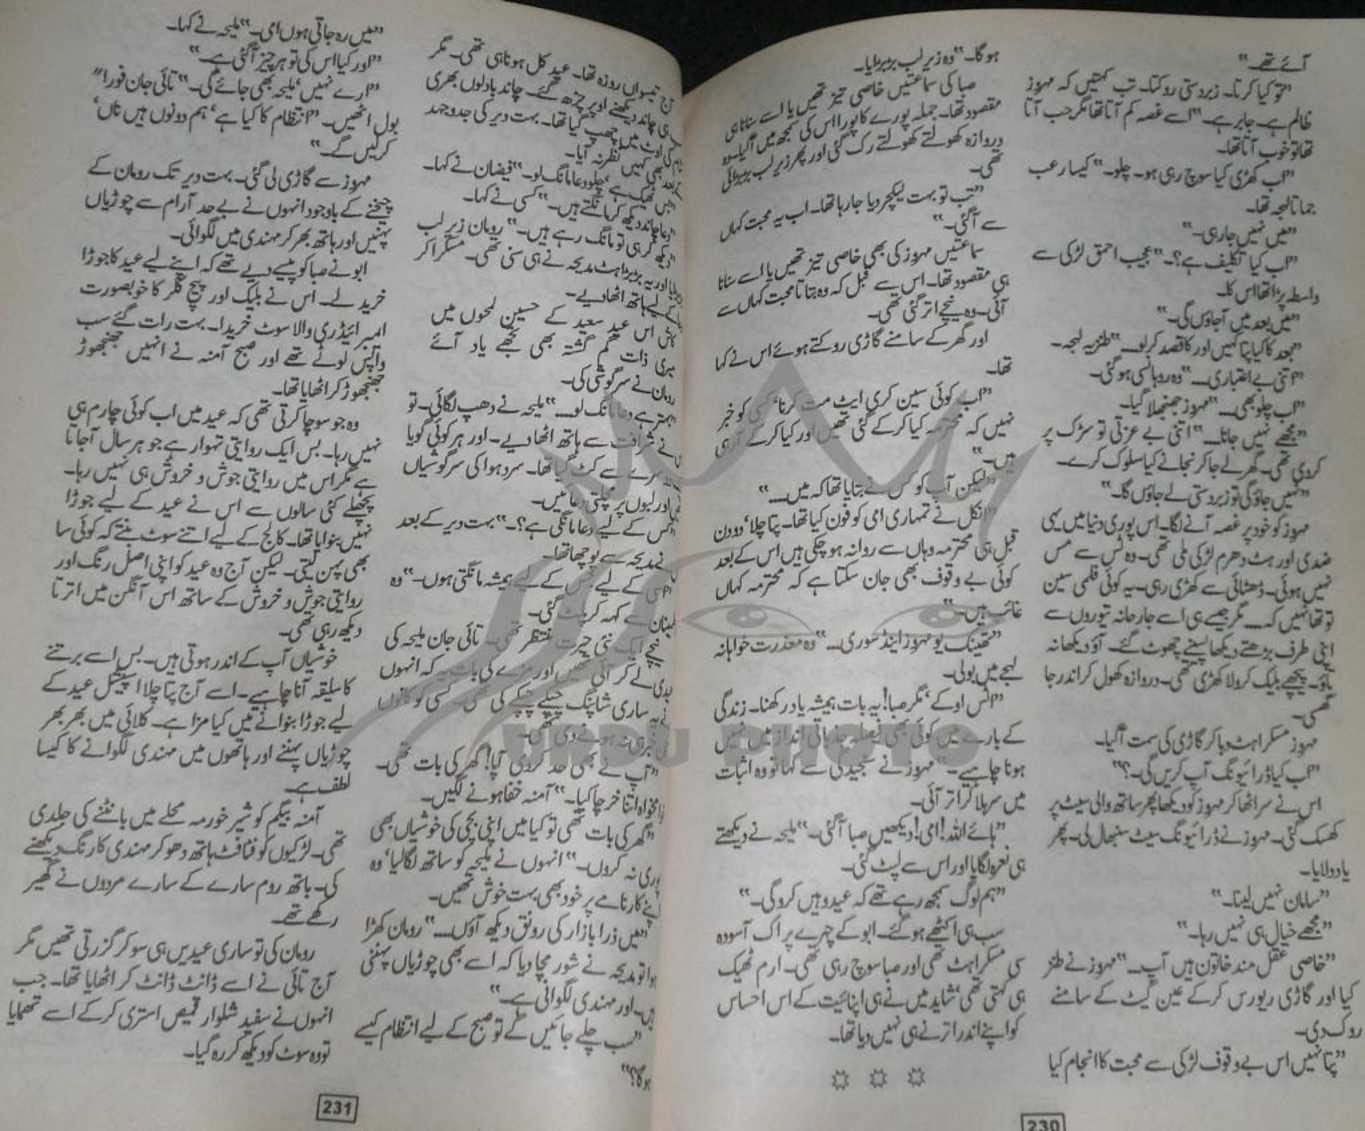 آئے تھے۔"
"تو کیا کرتا۔ زبردستی روکتا۔ تب کہتیں کہ مہروز
ظالم ہے۔ جابر ہے۔" اسے غصہ کم آتا تھا مگر جب آتا
تھا تو خوب آتا تھا۔
"اب کھڑی کیا سوچ رہی ہو۔ چلو۔" کیسا رعب
جماتا لہجہ تھا۔
"میں نہیں جا رہی۔"
"اب کیا تکلیف ہے؟۔" عجیب احمق لڑکی سے
واسطہ پڑا تھا اس کا۔
"میں بعد میں آ جاؤں گی۔"
"بعد کا کیا پتا کہیں اور کا قصد کر لو۔" طنزیہ لہجہ۔
"اتنی بے اعتباری۔" وہ روہانسی ہو گئی۔
"اب چلو بھی۔" مہروز جھنجھلا گیا۔
"مجھے نہیں جانا۔" اتنی بے عزتی تو سڑک پر
کر دی تھی۔ گھر لے جا کر نجانے کیا سلوک کرے۔
"نہیں جاؤ گی تو زبردستی لے جاؤں گا۔"
مہروز کو خود پر غصہ آنے لگا۔ اس پوری دنیا میں یہی
ضدی اور ہٹ دھرم لڑکی ملی تھی۔ وہ ٹس سے مس
نہیں ہوئی۔ ڈھٹائی سے کھڑی رہی۔ یہ کوئی فلمی سین
تو تھا نہیں کہ۔۔۔ مگر جیسے ہی اسے جارحانہ تیوروں سے
اپنی طرف بڑھتے دیکھا پسینے چھوٹ گئے۔ آؤ دیکھا نہ
تاؤ۔ پیچھے بلیک کرولا کھڑی تھی۔ دروازہ کھول کر اندر جا
گھسی۔
مہروز مسکراہٹ دبا کر گاڑی کی سمت آ گیا۔
"اب کیا ڈرائیونگ آپ کریں گی۔؟"
اس نے سر اٹھا کر مہروز کو دیکھا پھر ساتھ والی سیٹ پر
کھسک گئی۔ مہروز نے ڈرائیونگ سیٹ سنبھال لی۔ پھر
یاد دلایا۔
"سامان نہیں لینا۔"
"مجھے خیال ہی نہیں رہا۔"
"خاصی عقل مند خاتون ہیں آپ۔" مہروز نے طنز
کیا اور گاڑی ریورس کر کے عین گیٹ کے سامنے
روک دی۔
"پتا نہیں اس بے وقوف لڑکی سے محبت کا انجام کیا
ہو گا۔" وہ زیر لب بڑبڑایا۔
صبا کی سماعتیں خاصی تیز تھیں یا اسے سنانا ہی
مقصود تھا۔ جملہ پورے کا پورا اس کی سمجھ میں آ گیا۔ وہ
دروازہ کھولتے کھولتے رک گئی اور پھر زیر لب بڑبڑائی
تھی۔
"تب تو بہت لیکچر دیا جا رہا تھا۔ اب یہ محبت کہاں
سے آ گئی۔"
سماعتیں مہروز کی بھی خاصی تیز تھیں یا اسے سنانا
ہی مقصود تھا۔ اس سے قبل کہ وہ بتاتا محبت کہاں سے
آئی۔ وہ نیچے اتر گئی تھی۔
اور گھر کے سامنے گاڑی روکتے ہوئے اس نے کہا
تھا۔
"اب کوئی سین کری ایٹ مت کرنا، کسی کو خبر
نہیں کہ محترمہ کیا کر کے گئی تھیں اور کیا کر کے آ رہی
ہیں۔"
"لیکن آپ کو کس نے بتایا تھا کہ میں۔۔۔"
"انکل نے تمہاری امی کو فون کیا تھا۔ پتا چلا، دو دن
قبل ہی محترمہ وہاں سے روانہ ہو چکی ہیں اس کے بعد
کوئی بے وقوف بھی جان سکتا ہے کہ محترمہ کہاں
غائب ہیں۔"
"تھینک یو مہروز اینڈ سوری۔۔" وہ معذرت خواہانہ
لہجے میں بولی۔
"اٹس اوکے، مگر صبا! یہ بات ہمیشہ یاد رکھنا۔ زندگی
کے بارے میں کوئی بھی فیصلہ جذباتی انداز میں نہیں
ہونا چاہیے۔" مہروز نے سنجیدگی سے کہا تو وہ اثبات
میں سر ہلا کر اتر آئی۔
"ہائے اللہ! امی! دیکھیں صبا آ گئی۔" ملیحہ نے دیکھتے
ہی نعرہ لگایا اور اس سے لپٹ گئی۔
"ہم لوگ سمجھ رہے تھے کہ عید وہیں کرو گی۔"
سب ہی اکٹھے ہو گئے۔ ابو کے چہرے پر اک آسودہ
سی مسکراہٹ تھی اور صبا سوچ رہی تھی۔ ارم ٹھیک
ہی کہتی تھی، شاید میں نے ہی اپنائیت کے اس احساس
کو اپنے اندر اترنے ہی نہیں دیا تھا۔
230
آج تیسواں روزہ تھا۔ عید کل ہونا ہی تھی۔ مگر
چاند دیکھنے اوپر چڑھ گئے۔ چاند بادلوں بھری
کی اوٹ میں چھپ گیا تھا۔ بہت دیر کی جدوجہد
بعد بھی کہیں نظر نہ آیا۔
ٹھیک ہے، چلو دعا مانگ لو۔" فیضان نے کہا۔
"دعا چاند دیکھ کر مانگتے ہیں۔" کسی نے کہا۔
"دیکھ کر ہی تو مانگ رہے ہیں۔" رومان زیر لب
اور یہ بڑبڑاہٹ مدیحہ نے ہی سنی تھی۔ مسکرا کر
کے لیے ہاتھ اٹھا دیے۔
کاش اس عید سعید کے حسین لمحوں میں
میری ذات گم گشتہ بھی تجھے یاد آئے
رومان نے سرگوشی کی۔
"بہتر ہے دعا مانگ لو۔۔" ملیحہ نے دھپ لگائی۔ تو
نے شرافت سے ہاتھ اٹھا دیے۔ اور ہر کوئی گویا
سے کٹ گیا تھا۔ سرد ہوا کی سرگوشیاں
اور لبوں پر مچلتی دعائیں۔
"کس کے لیے دعا مانگی ہے؟۔" بہت دیر کے بعد
نے مدیحہ سے پوچھا تھا۔
کے لیے جس کے لیے ہمیشہ مانگتی ہوں۔" وہ
اطمینان سے کہہ کر پلٹ گئی۔
نیچے ایک نئی حیرت منتظر تھی۔ تائی جان ملیحہ کی
لے کر آئی تھیں اور مزے کی بات یہ کہ انہوں
نے یہ ساری شاپنگ چپکے چپکے کی تھی۔ کسی کو کانوں
خبر نہ ہونے دی تھی۔
"آپ نے بھی حد کر دی آپا! گھر کی بات تھی۔
خوامخواہ اتنا خرچا کیا۔" آمنہ خفا ہونے لگیں۔
"گھر کی بات تھی تو کیا میں اپنی بچی کی خوشیاں بھی
پوری نہ کروں۔" انہوں نے ملیحہ کو ساتھ لگا لیا، وہ
اپنے کارنامے پر خود بھی بہت خوش تھیں۔
"میں ذرا بازار کی رونق دیکھ آؤں۔۔" رومان کھڑا
ہوا تو مدیحہ نے شور مچا دیا کہ اسے بھی چوڑیاں پہننی
ہیں۔ اور مہندی لگوانی ہے۔"
"سب چلے جائیں گے تو صبح کے لیے انتظام کیسے
ہو گا؟"
"میں رہ جاتی ہوں امی۔" ملیحہ نے کہا۔
"اور کیا اس کی تو ہر چیز آ گئی ہے۔"
"ارے نہیں، ملیحہ بھی جائے گی۔" تائی جان فوراً
بول اٹھیں۔ "انتظام کا کیا ہے، ہم دونوں ہیں ناں،
کر لیں گے۔"
مہروز سے گاڑی لی گئی۔ بہت دیر تک رومان کے
چیخنے کے باوجود انہوں نے بے حد آرام سے چوڑیاں
پہنیں اور ہاتھ بھر کر مہندی میں لگوائی۔
ابو نے صبا کو پیسے دیے تھے کہ اپنے لیے عید کا جوڑا
خرید لے۔ اس نے بلیک اور پیچ کلر کا خوبصورت
امبرائیڈری والا سوٹ خریدا۔ بہت رات گئے سب
واپس لوٹے تھے اور صبح آمنہ نے انہیں جھنجھوڑ
جھنجھوڑ کر اٹھایا تھا۔
وہ جو سوچا کرتی تھی کہ عید میں اب کوئی چارم ہی
نہیں رہا۔ بس ایک روایتی تہوار ہے جو ہر سال آ جاتا
ہے مگر اس میں روایتی جوش و خروش ہی نہیں رہا۔
پچھلے کئی سالوں سے اس نے عید کے لیے جوڑا
نہیں بنوایا تھا۔ کالج کے لیے اتنے سوٹ بنتے کہ کوئی سا
بھی پہن لیتی۔ لیکن آج وہ عید کو اپنی اصل رنگ اور
روایتی جوش و خروش کے ساتھ اس آنگن میں اترتا
دیکھ رہی تھی۔
خوشیاں آپ کے اندر ہوتی ہیں۔ بس اسے برتنے
کا سلیقہ آنا چاہیے۔ اسے آج پتا چلا اسپیشل عید کے
لیے جوڑا بنوانے میں کیا مزا ہے۔ کلائی میں بھر بھر
چوڑیاں پہننے اور ہاتھوں میں مہندی لگوانے کا کیسا
لطف ہے۔
آمنہ بیگم کو شیر خورمہ محلے میں بانٹنے کی جلدی
تھی۔ لڑکیوں کو فٹافٹ ہاتھ دھو کر مہندی کا رنگ دیکھنے
کی۔ باتھ روم سارے کے سارے مردوں نے گھیر
رکھے تھے۔
رومان کی تو ساری عیدیں ہی سو کر گزرتی تھیں مگر
آج تائی نے اسے ڈانٹ ڈانٹ کر اٹھایا تھا۔ جب
انہوں نے سفید شلوار قمیض استری کر کے اسے تھمایا
تو وہ سوٹ کو دیکھ کر رہ گیا۔
231
URDU PHOTO